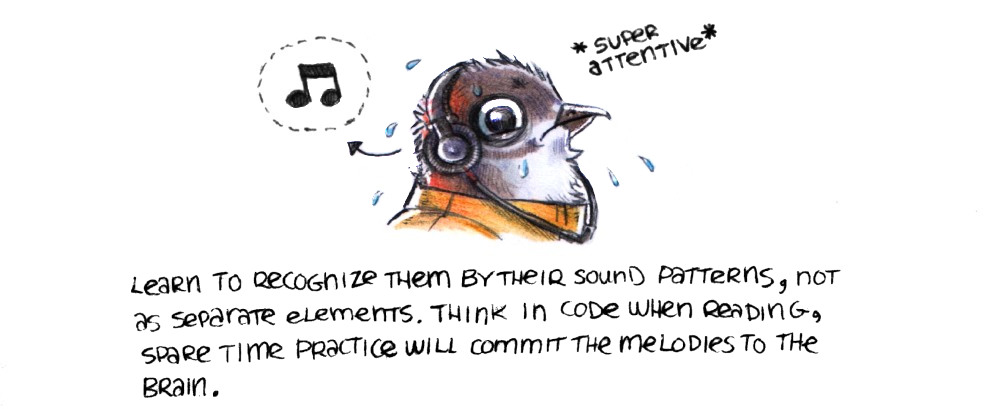 *SUPER
ATTENTIVE*
LEARN TO RECOGNIZE THEM BY THEIR SOUND PATTERNS, NOT
AS SEPARATE ELEMENTS. THINK IN CODE WHEN READING,
SPARE TIME PRACTICE WILL COMMIT THE MELODIES TO THE
BRAIN.